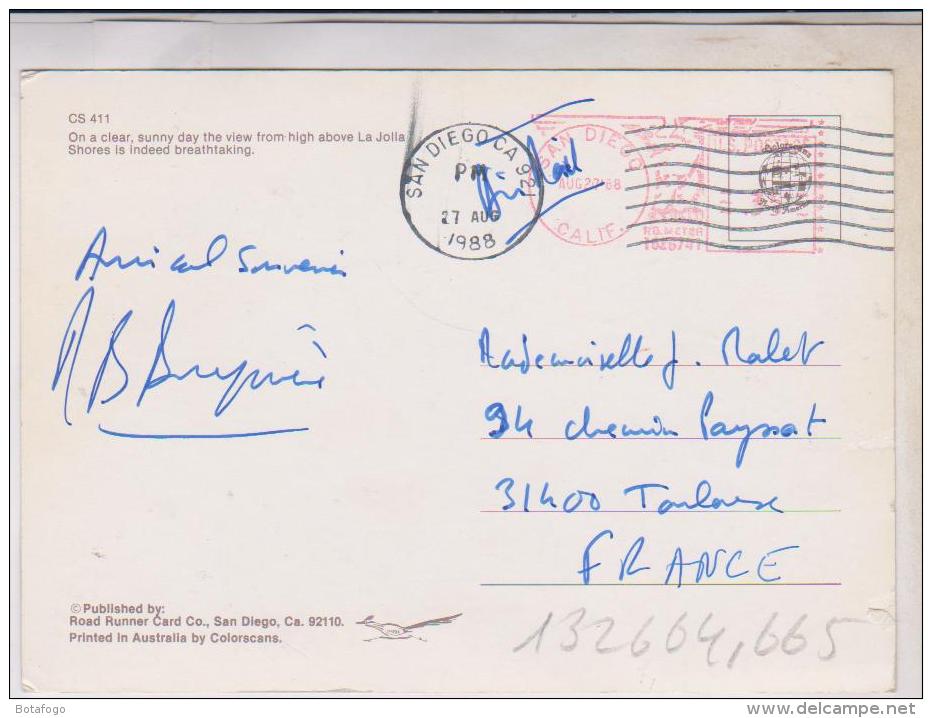 CS 411
On a clear, sunny day the view from high above La Jolla
Shores is indeed breathtaking.
SAN DIEGO CA 921
PM
27 AUG
1988
SAN DIEGO
AUG 27'88
CALIF.
U.S. POSTAGE
P.B. METER
1026747
Colorscans
Amical Souvenir
Mademoiselle J. Malet
94 chemin Payssat
31400 Toulouse
FRANCE
© Published by:
Road Runner Card Co., San Diego, Ca. 92110.
Printed in Australia by Colorscans.
132664,665
Botafogo
www.delcampe.net